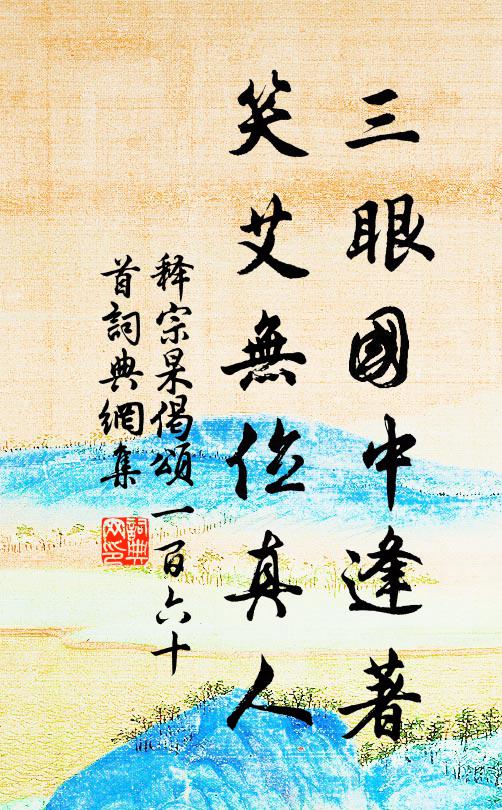 三眼國中逢著
笑艾無位真人
释宗杲偈頌一百六十
首詞典網集
詞典